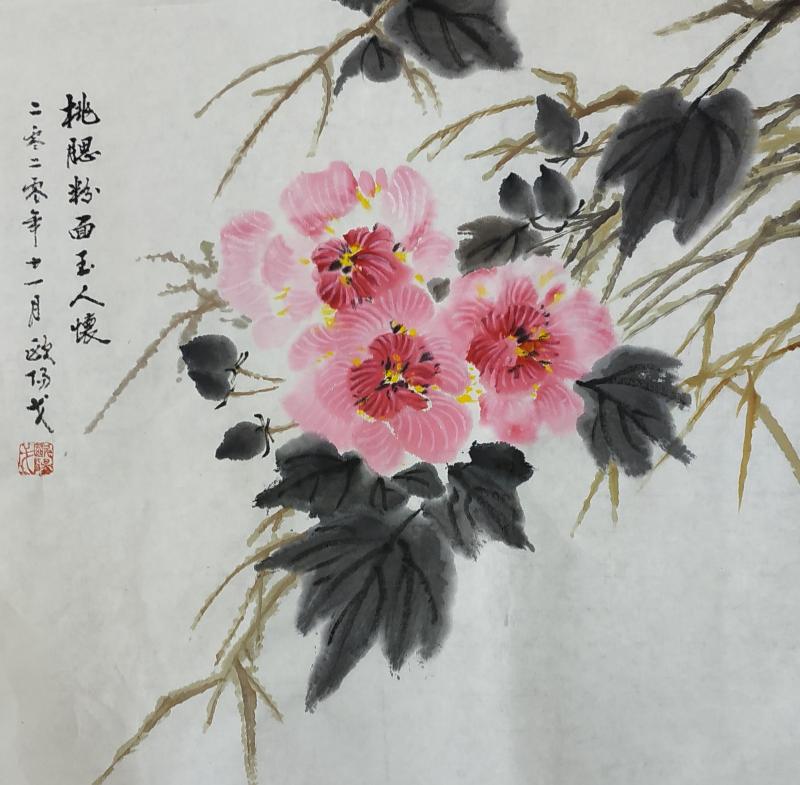 桃腮粉面玉人懷
二零二零年十一月歐陽戈